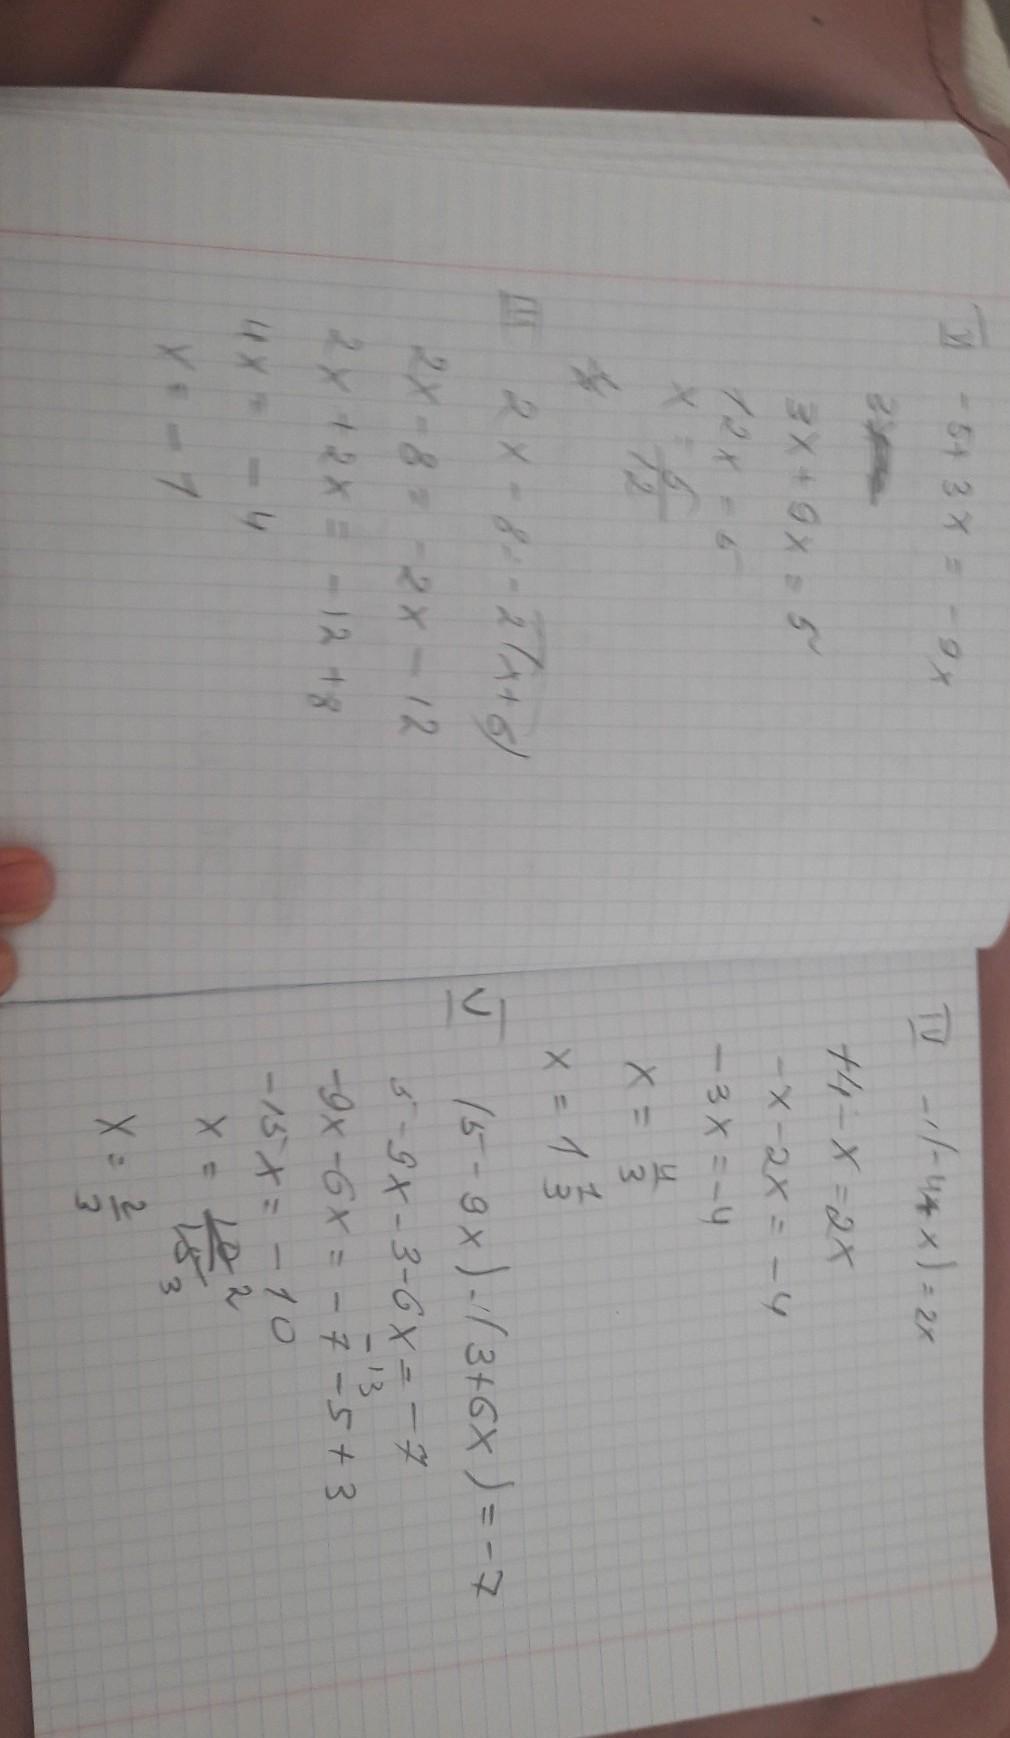 II -5+3x = -9x
3x+9x = 5
12x = 5
x = 5/12
III 2x-8=-2(x+6)
2x-8=-2x-12
2x+2x = -12+8
4x = -4
x = -1
IV -(-4+x)=2x
+4-x=2x
-x-2x=-4
-3x=-4
x = 4/3
x = 1 1/3
V (5-9x)-(3+6x)=-7
5-9x-3-6x=-7
-13
-9x-6x=-7-5+3
-15x=-10
x = 10/15 2/3
x = 2/3